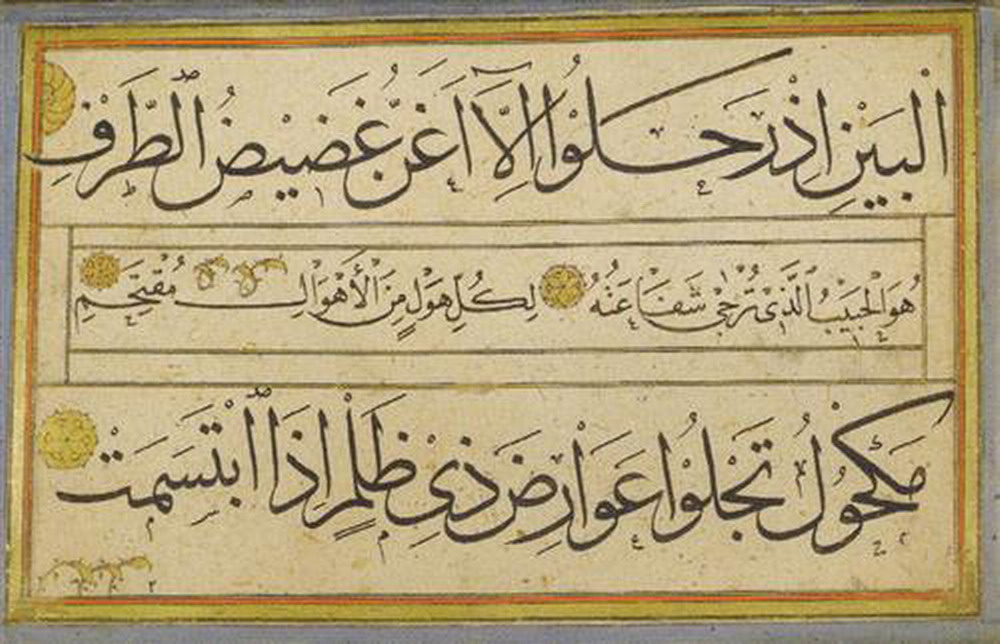 الْبَيْنِ اِذْ رَحَلُوْا اِلَّا اَغَنُّ غَضِيْضُ الطَّرْفِ
هُوَ الْحَبِيْبُ الَّذِىْ تُرْجٰى شَفَاعَتُهُ لِكُلِّ هَوْلٍ مِنَ الْأَهْوَالِ مُقْتَحِمِ
مَكْحُوْلُ تَجْلُوْا عَوَارِضَ ذِىْ ظَلْمٍ اِذَا ابْتَسَمَتْ